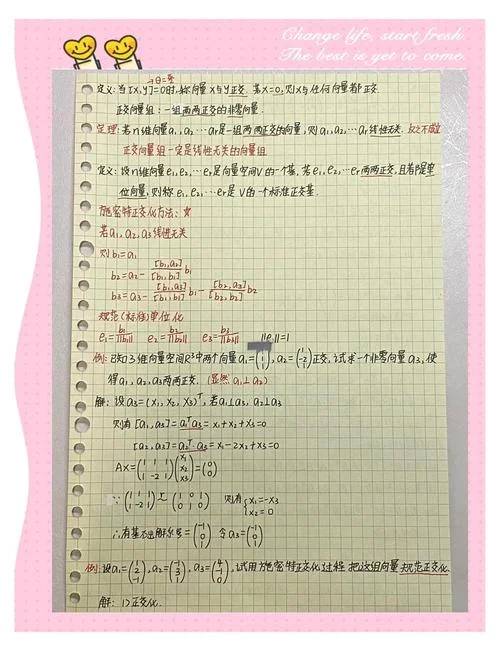 Change life, start fresh.
The best is yet to come.
→θ=π/2
定义:当[x,y]=0时,称向量x与y正交. 若x=0,则x与任何向量都正交.
正交向量组:一组两两正交的非零向量.
定理:若n维向量a₁,a₂…aᵣ是一组两两正交的向量,则a₁,a₂…aᵣ线性无关. 反之不成立
正交向量组一定是线性无关的向量组
定义:设n维向量e₁,e₂,…eᵣ是向量空间V的一个基,若e₁,e₂,…eᵣ两两正交,且都是单
位向量,则称e₁,e₂,…eᵣ是V的一个标准正交基.
施密特正交化方法:☆
若a₁,a₂,a₃线性无关
则b₁=a₁
b₂=a₂-[b₁,a₂]/[b₁,b₁] b₁
b₃=a₃-[b₁,a₃]/[b₁,b₁] b₁-[b₂,a₃]/[b₂,b₂] b₂
规范(标准)单位化
e₁=b₁/||b₁|| e₂=b₂/||b₂|| e₃=b₃/||b₃|| ||e||=1
例:已知3维向量空间R³中两个向量a₁=(1 1 1),a₂=(1 -2 1)正交,试求一个非零向量a₃,使
得a₁,a₂,a₃两两正交.(显然a₁⊥a₂)
解:设a₃=(x₁,x₂,x₃)ᵀ,若a₁⊥a₃,a₂⊥a₃
则有[a₁,a₃]=a₁ᵀa₃=x₁+x₂+x₃=0
[a₂,a₃]=a₂ᵀ·a₃=x₁-2x₂+x₃=0
Ax=(1 1 1; 1 -2 1)(x₁ x₂ x₃)=(0 0)
∵(1 1 1; 1 -2 1)~(1 0 1; 0 1 0) 则有{x₁=-x₃ x₂=0
∴有基础解系ξ=(-1 0 1) 令a₃=(-1 0 1)
例:设a₁=(1 2 -1),a₂=(-1 3 1),a₃=(4 -1 0),试用施密特正交化过程 把这组向量规范正交化.
解:1)正交化.